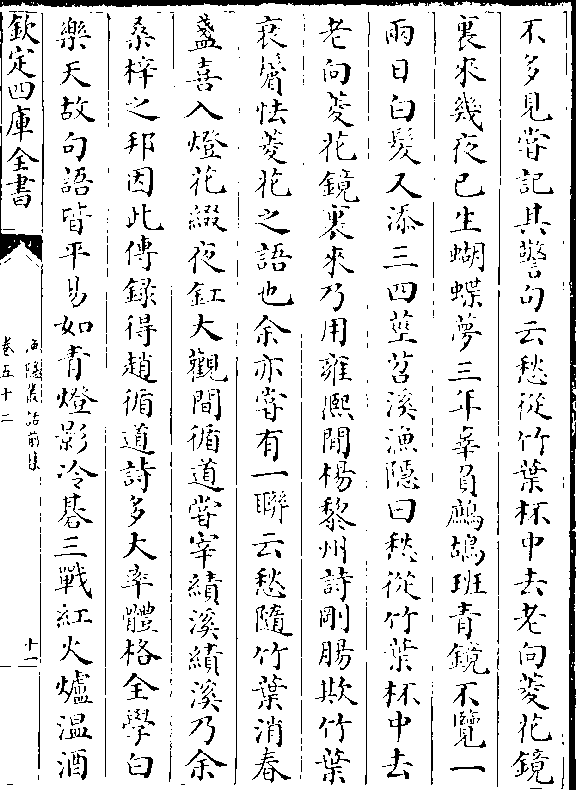 不多見嘗記其警句云愁從竹葉杯中去老向菱花鏡
裏來幾夜已生蝴蝶夢三年辜負鷓鴣班青鏡不覽一
兩日白髮又添三四莖苕溪漁隱曰愁從竹葉杯中去
老向菱花鏡裏來乃用雍熙間楊黎州詩剛腸欺竹葉
衰鬢怯菱花之語也余亦嘗有一聯云愁隨竹葉消春
盞喜入燈花綴夜釭大觀間循道嘗宰績溪績溪乃余
桑梓之邦因此傳錄得趙循道詩多大率體格全學白
樂天故句語皆平易如青燈影冷碁三戰紅火爐温酒
欽定四庫全書
漁隱叢話前集
卷五十二
十一